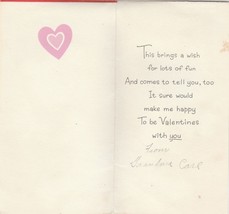 This brings a wish
for lots of fun
And comes to tell you, too
It sure would
make me happy
To be Valentines
with you
From
Carl